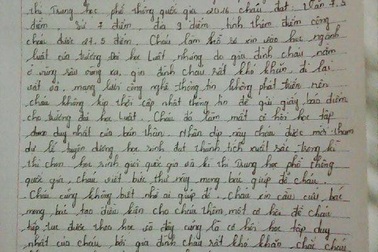 thi Trung học phổ thông quốc gia 2016 cháu đạt Văn 7.5
điểm Sử 7 điểm địa 9 điểm tính thêm điểm cộng
cháu được 27.5 điểm. Cháu làm hồ sơ xin vào học ngành
luật của trường đại học Luật nhưng do gia đình cháu nằm
ở vùng sâu vùng xa, gia đình cháu rất khó khăn đi lại
vất vả, mạng lưới công nghệ thông tin không phát triển nên
cháu không kịp thời cập nhật thông tin để gửi giấy báo điểm
cho trường đại học Luật. Cháu đã làm mất cơ hội học tập
duy nhất của bản thân. Nhân dịp này cháu được mời tham
dự lễ tuyên dương học sinh đạt thành tích xuất sắc trong kì
thi chọn học sinh giỏi quốc gia và kì thi Trung học phổ thông
quốc gia, cháu viết bức thư này mong bác giúp đỡ cháu.
Cháu cũng không biết nhờ ai giúp đỡ. Cháu xin cầu cứu bác
mong bác tạo điều kiện cho cháu thêm một cơ hội để cháu
tiếp tục được theo học và đây cũng là cơ hội học tập duy
nhất của cháu, bởi gia đình cháu rất khó khăn, cháu cháu